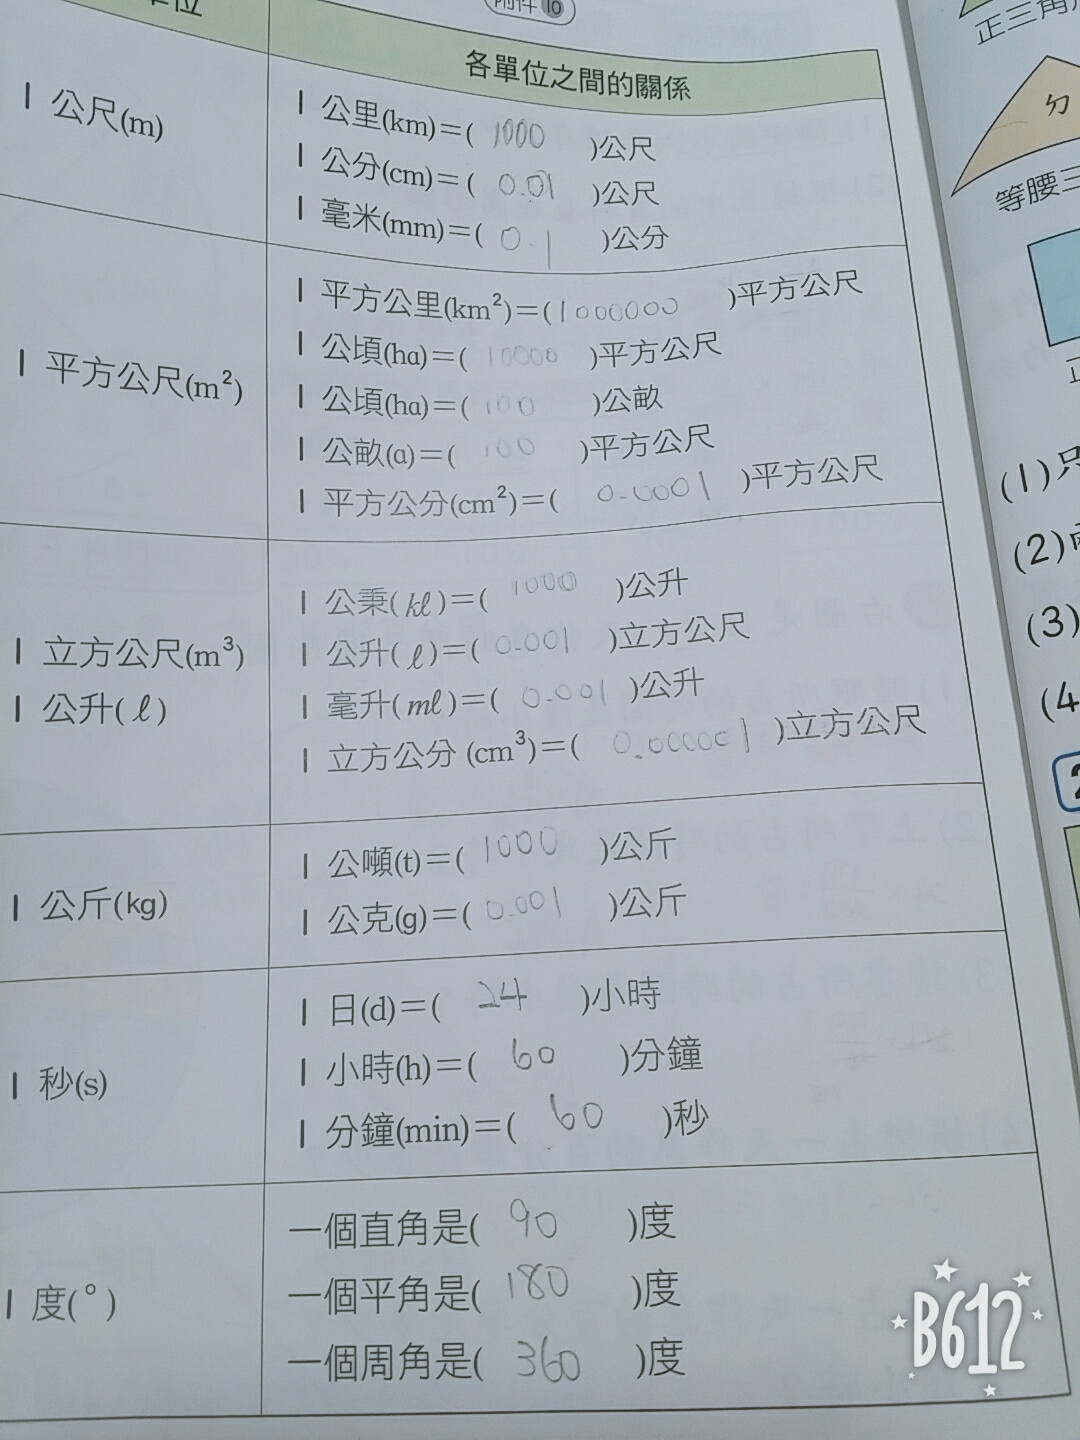 附件10
單位
各單位之間的關係
1 公尺(m)
1 公里(km)=( 1000 )公尺
1 公分(cm)=( 0.01 )公尺
1 毫米(mm)=( 0.1 )公分
1 平方公尺(m²)
1 平方公里(km²)=( 1000000 )平方公尺
1 公頃(ha)=( 10000 )平方公尺
1 公頃(ha)=( 100 )公畝
1 公畝(a)=( 100 )平方公尺
1 平方公分(cm²)=( 0.0001 )平方公尺
1 立方公尺(m³)
1 公升(ℓ)
1 公秉(kℓ)=( 1000 )公升
1 公升(ℓ)=( 0.001 )立方公尺
1 毫升(mℓ)=( 0.001 )公升
1 立方公分 (cm³)=( 0.000001 )立方公尺
1 公斤(kg)
1 公噸(t)=( 1000 )公斤
1 公克(g)=( 0.001 )公斤
1 秒(s)
1 日(d)=( 24 )小時
1 小時(h)=( 60 )分鐘
1 分鐘(min)=( 60 )秒
1 度(°)
一個直角是( 90 )度
一個平角是( 180 )度
一個周角是( 360 )度
正三角
ㄉ
等腰三
正
(1)只
(2)
(3)
(4
2
B612